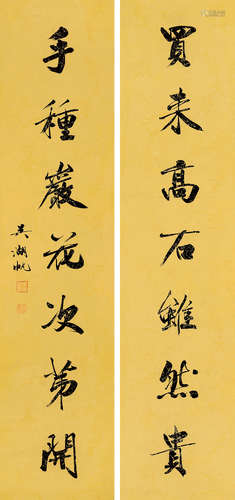 買來高石雖然貴
手種巖花次第開
吳湖帆